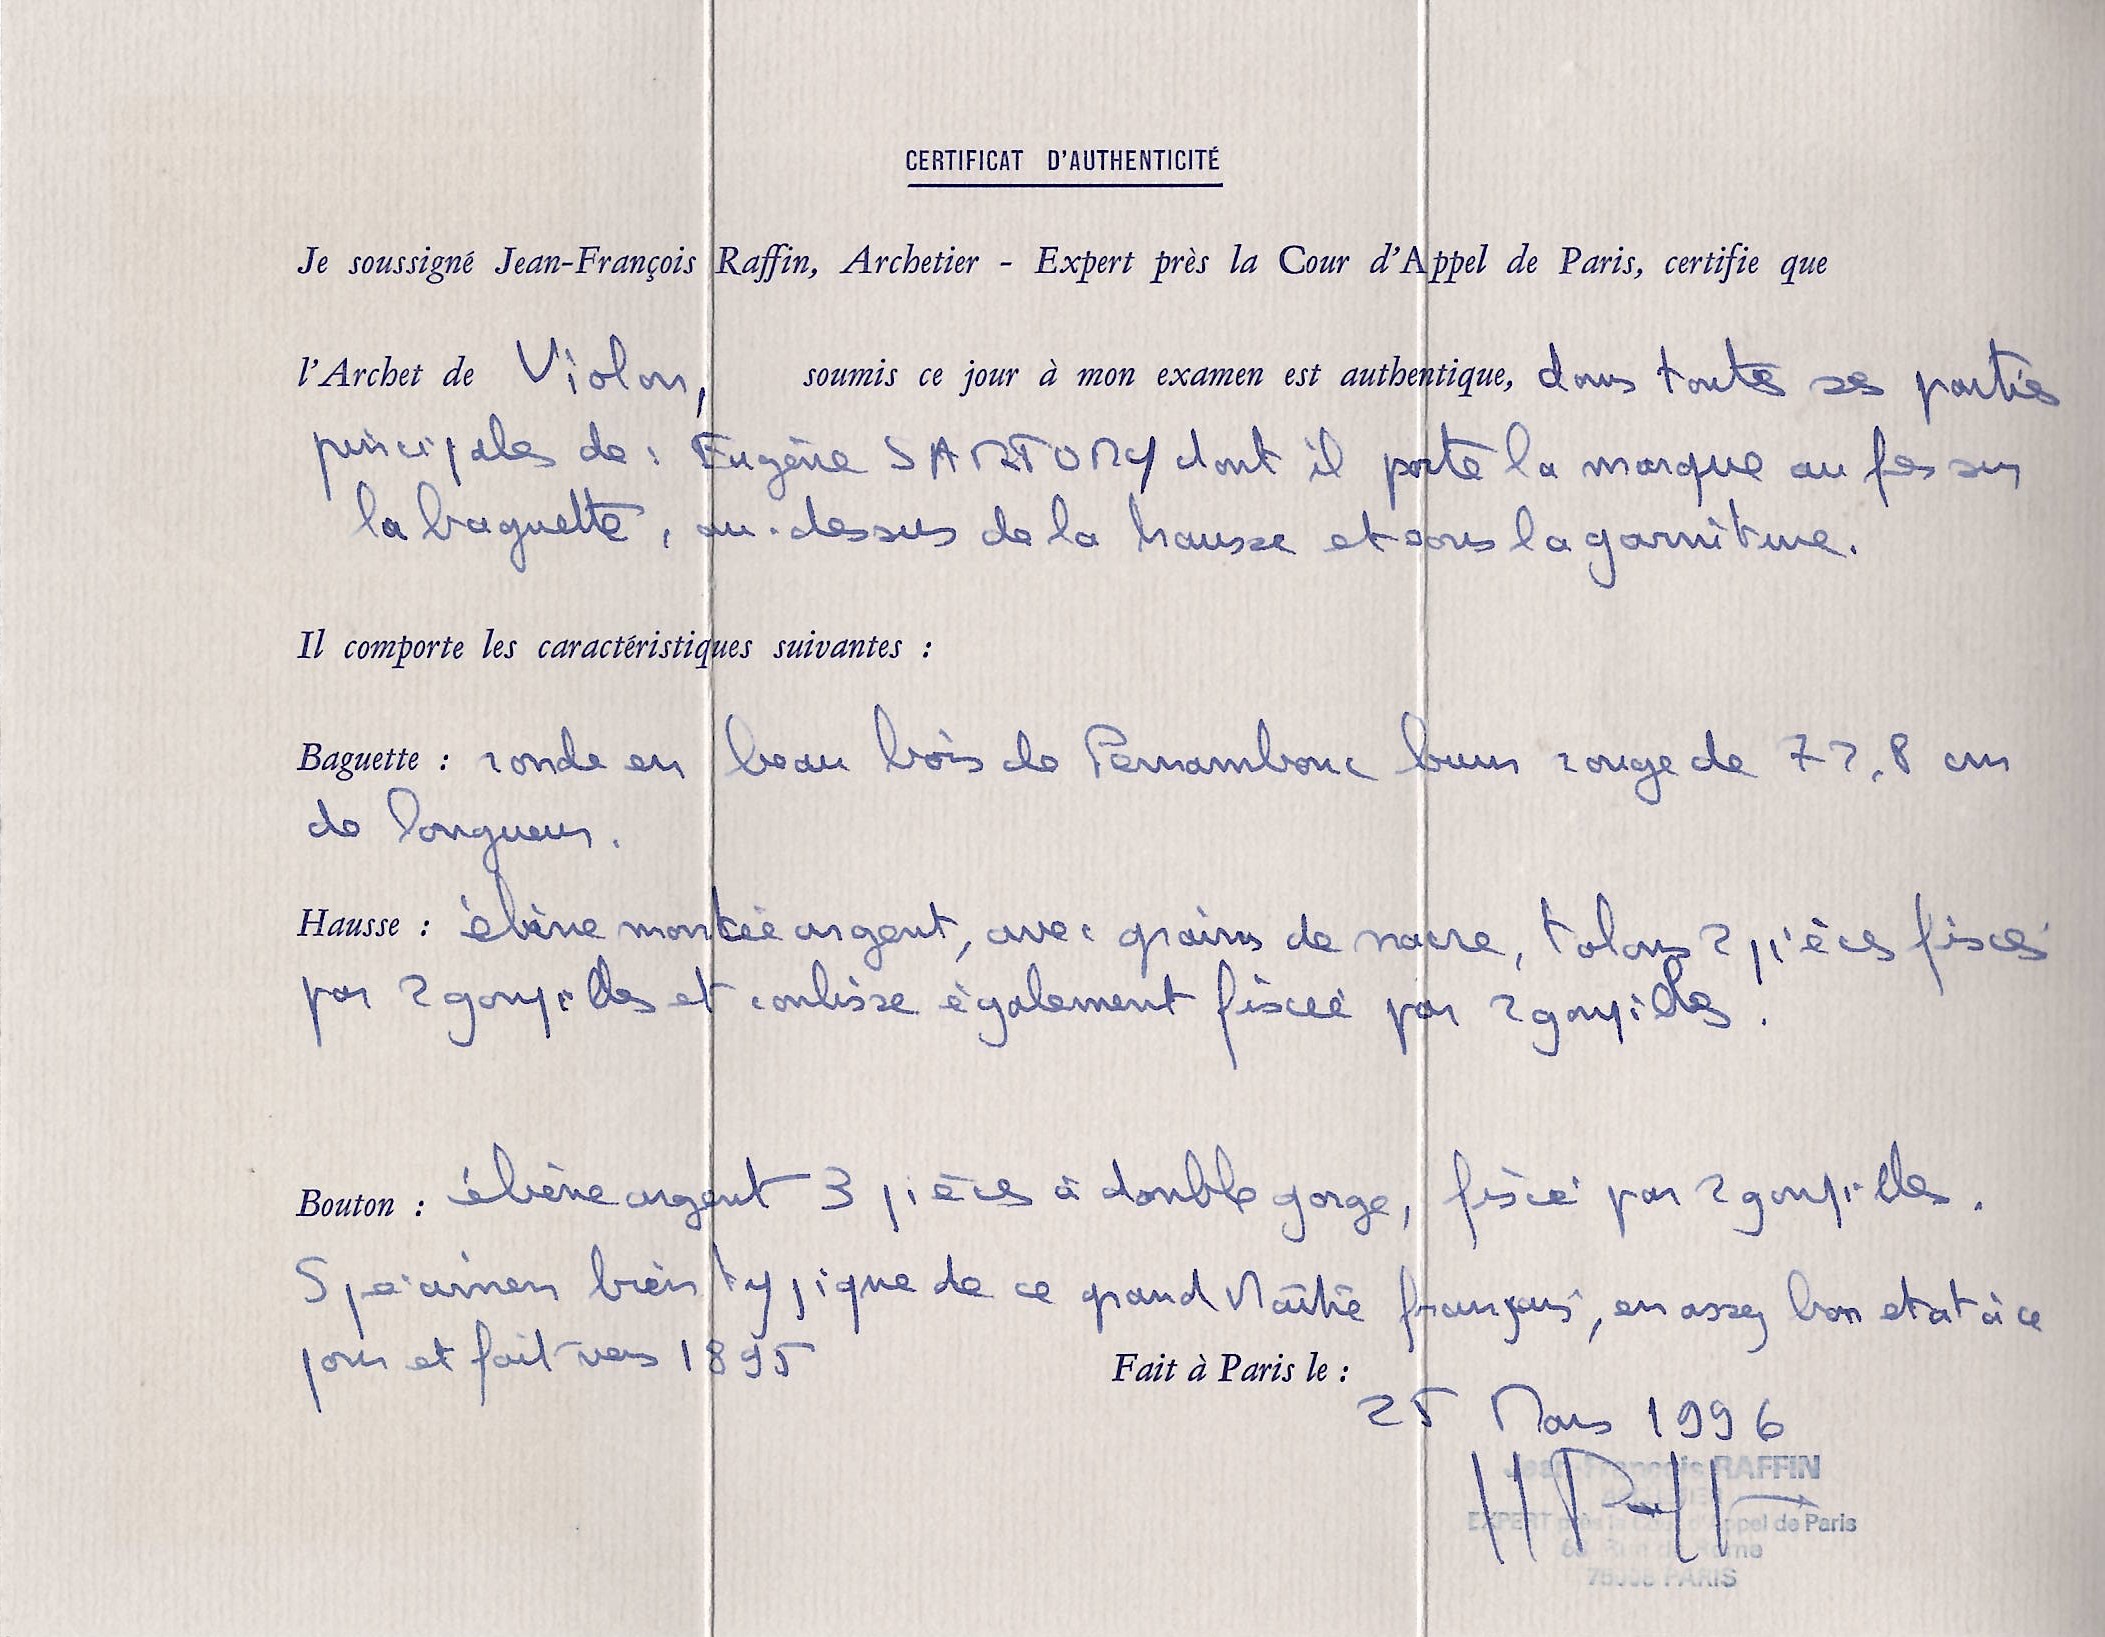 CERTIFICAT D'AUTHENTICITÉ
Je soussigné Jean-François Raffin, Archetier - Expert près la Cour d'Appel de Paris, certifie que
l'Archet de Violon, soumis ce jour à mon examen est authentique, dans toutes ses parties
principales de : Eugène SARTORY dont il porte la marque au fer sur
la baguette, au-dessus de la hausse et sous la garniture.
Il comporte les caractéristiques suivantes :
Baguette : ronde en beau bois de Pernambouc brun rouge de 72,8 cm
de longueur.
Hausse : ébène montée argent, avec grains de nacre, talons 2 pièces fixés
par 2 goupilles et coulisse également fixée par 2 goupilles.
Bouton : ébène argent 3 pièces à double gorge, fixé par 2 goupilles.
Spécimen bien typique de ce grand Maître français, en assez bon etat à ce
jour et fait vers 1895
Fait à Paris le :
25 Mars 1996
Jean-François RAFFIN
EXPERT près la Cour d'Appel de Paris
Rue de Rome
PARIS